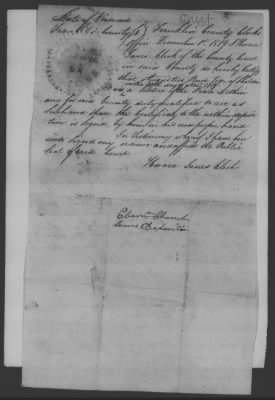 Court
State of Vermont
Franklin County ss } Franklin County Clerks
office December 1st 1819 I Horace
Janes Clerk of the County Court
in said County do hereby certify
that Augustus Burt Esqr of Sheldon
is a Justice of the Peace within
and for said County duly qualified to act as
such and that the Certificate to the within deposi
tion is signed by him in his own proper hand
In Testimony whereof I have here
unto signed my name and affixed the Public
Seal of said Court
Horace Janes Clerk
Eben Church